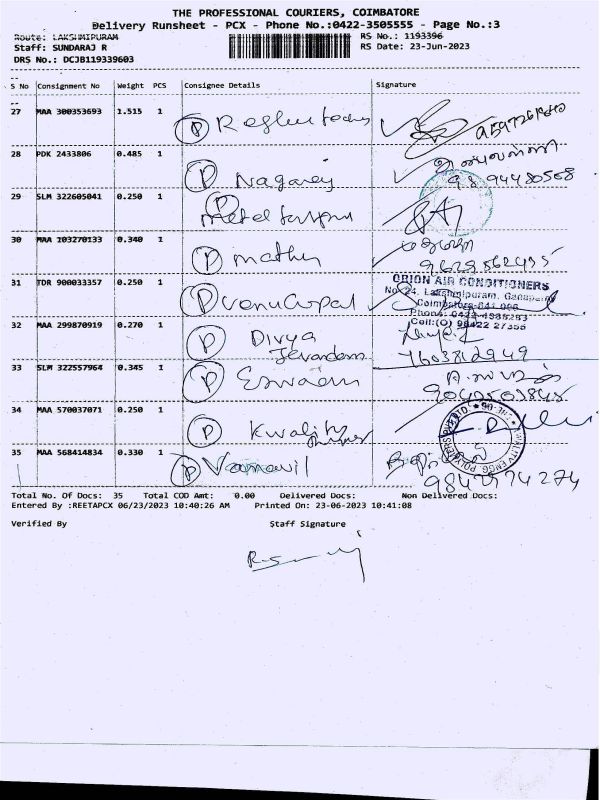 THE PROFESSIONAL COURIERS, COIMBATORE
Delivery Runsheet - PCX - Phone No.:0422-3505555 - Page No.:3
Route: LAKSHMIPURAM
RS No.: 1193396
Staff: SUNDARAJ R
RS Date: 23-Jun-2023
DRS No.: DCJB119339603
S No Consignment No Weight PCS Consignee Details Signature
27 MAA 300353693 1.515 1 P
28 PDK 2433806 0.485 1 P Nagaraj
9894480568
29 SLM 322605041 0.250 1 P
30 MAA 103270133 0.340 1 P mathu
9629562495
31 TDR 900033357 0.250 1 P venuGopal
ORION AIR CONDITIONERS
No: 24, Lakshmipuram, Ganapathy
Coimbatore-641 006
32 MAA 299870919 0.270 1 P Divya
Jevandam
7603812949
33 SLM 322557964 0.345 1 P Eswaran
34 MAA 570037071 0.250 1 P Kwality
35 MAA 568414834 0.330 1 P Vanavil
Total No. Of Docs: 35 Total COD Amt: 0.00 Delivered Docs: Non Delivered Docs:
Entered By :REETAPCX 06/23/2023 10:40:26 AM Printed On: 23-06-2023 10:41:08
Verified By Staff Signature